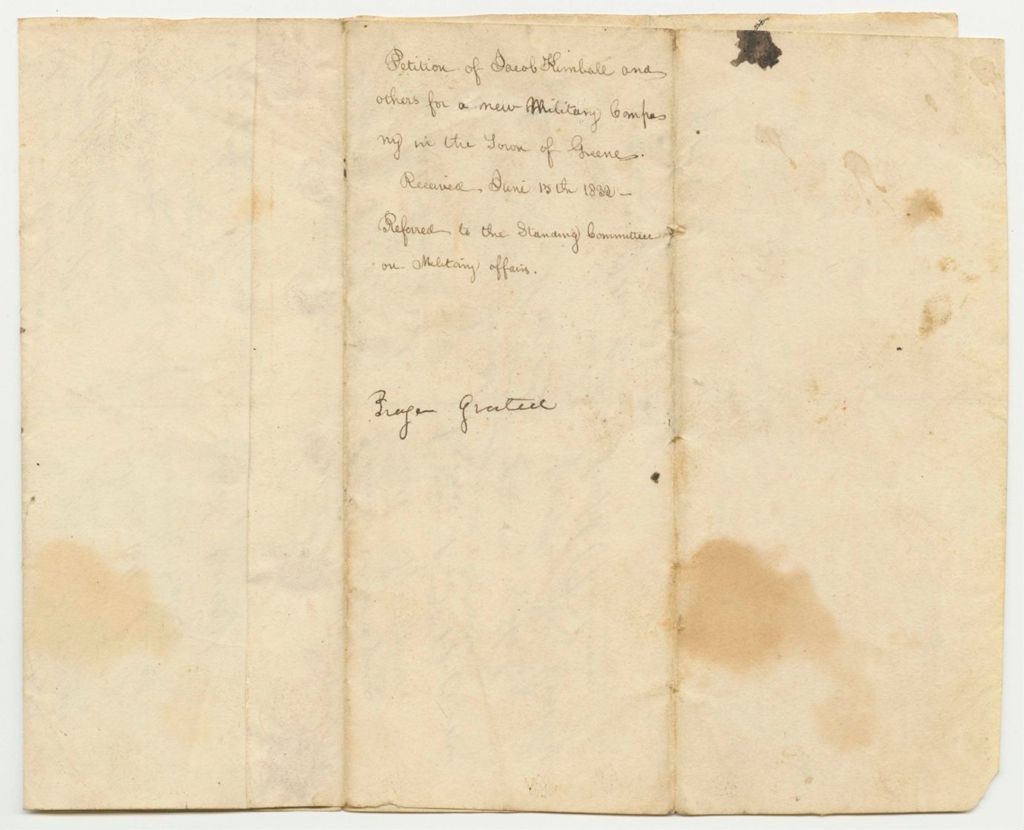 Petition of Jacob Kimball and
others for a new Military Compa
ny in the Town of Greene.
Received June 13th 1832 –
Referred to the Standing Committee
on Military affairs.
Grated